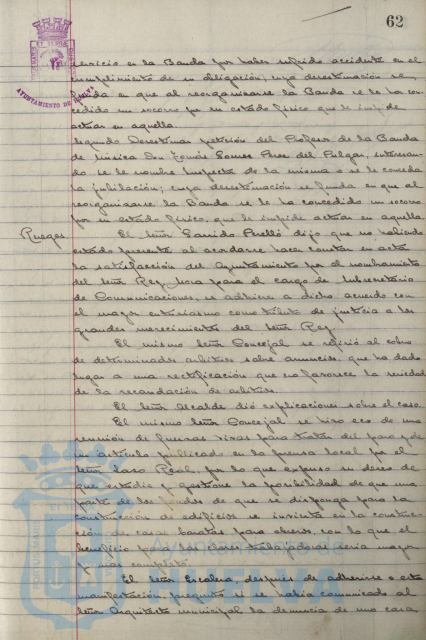 62
AYUNTAMIENTO DE HUELVA
servicio en la Banda por haber sufrido accidente en el
cumplimiento de su obligación, cuya desestimación se
funda en que al reorganizarse la Banda se le ha con-
cedido un socorro por su estado físico que le impide
actuar en aquella.
Segundo Desestimar petición del Profesor de la Banda
de Música Don Tomás Gomez Perez del Pulgar, interesan-
do se le nombre Inspector de la misma o se le conceda
la jubilación; cuya desestimación se funda en que al
reorganizarse la Banda se le ha concedido un socorro
por su estado físico, que le impide actuar en aquella.
Ruegos. El Señor Garrido Perelló dijo que no habiendo
estado presente al acordarse hacer constar en acta
la satisfacción del Ayuntamiento por el nombramiento
del Señor Rey Mora para el cargo de Subsecretario
de Comunicaciones, se adhiere a dicho acuerdo con
el mayor entusiasmo como tributo de justicia a los
grandes merecimientos del Señor Rey.
El mismo Señor Concejal se refirió al cobro
de determinados arbitrios sobre anuncios, que ha dado
lugar a una rectificación que no favorece la seriedad
de la recaudación de arbitrios.
El Señor Alcalde dió explicaciones sobre el caso.
El mismo Señor Concejal se hizo eco de una
reunión de fuerzas vivas para tratar del paro y de
un artículo publicado en la prensa local por el
Señor Laso Real, por lo que expuso su deseo de
que estudie y gestione la posibilidad de que una
parte de los fondos de que se disponga para la
construcción de edificios se invierta en la construc-
ción de casas baratas para obreros, con lo que el
beneficio para las clases trabajadoras sería mayor
y más completo.
El Señor Escalera, después de adherirse a esta
manifestación, preguntó si se había comunicado al
Señor Arquitecto municipal la denuncia de una casa